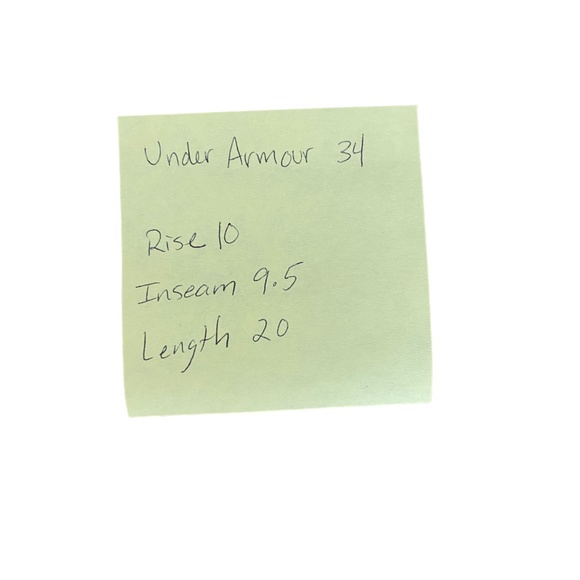 Under Armour 34
Rise 10
Inseam 9.5
Length 20